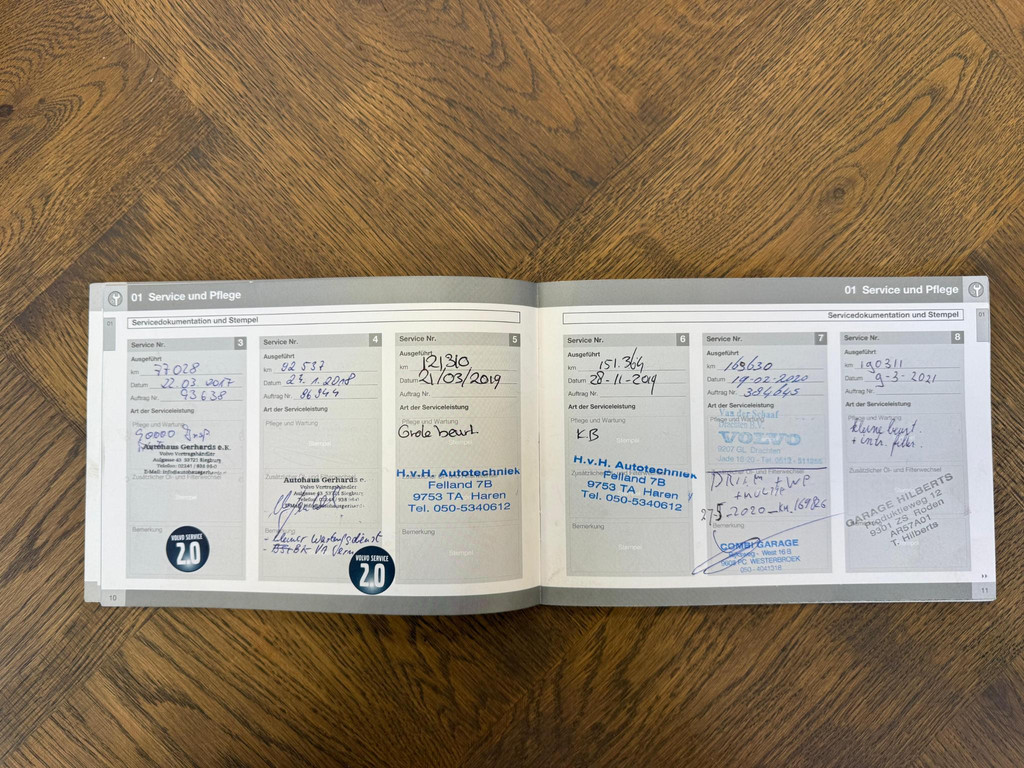 01 Service und Pflege
Servicedokumentation und Stempel
Service Nr. 3
Ausgeführt
km 77028
Datum 22.03.2017
Auftrag Nr. 93638
Art der Serviceleistung
Pflege und Wartung
90000
Autohaus Gerhards e.K.
Volvo Vertragshändler
Zusätzlicher Öl- und Filterwechsel
Stempel
Bemerkung
VOLVO SERVICE
2.0
Service Nr. 4
Ausgeführt
km 92 537
Datum 24.1.2018
Auftrag Nr. 96944
Art der Serviceleistung
Pflege und Wartung
Stempel
Autohaus Gerhards e.K.
Volvo Vertragshändler
Bemerkung
- kleiner Wartungsdienst
VOLVO SERVICE
2.0
Service Nr. 5
Ausgeführt
km 121310
Datum 21/03/2019
Auftrag Nr.
Art der Serviceleistung
Pflege und Wartung
Grote beurt.
H.v.H. Autotechniek
Felland 7B
9753 TA Haren
Tel. 050-5340612
Bemerkung
Stempel
10
01 Service und Pflege
Servicedokumentation und Stempel
01
Service Nr. 6
Ausgeführt
km 151.364
Datum 28-11-2019
Auftrag Nr.
Art der Serviceleistung
Pflege und Wartung
KB
Stempel
H.v.H. Autotechniek
Felland 7B
9753 TA Haren
Tel. 050-5340612
Bemerkung
Stempel
Service Nr. 7
Ausgeführt
km 169630
Datum 19-02-2020
Auftrag Nr. 384645
Art der Serviceleistung
Van der Schaaf
Drachten B.V.
VOLVO
+ WP
27 5 2020 - km. 169826
COMBI GARAGE
9608 PC WESTERBROEK
050 - 4041318
Service Nr. 8
Ausgeführt
km 190311
Datum 9-3-2021
Auftrag Nr.
Art der Serviceleistung
Pflege und Wartung
kleine beurt.
+ intr. filter.
Zusätzlicher Öl- und Filterwechsel
GARAGE HILBERTS
Produktieweg 12
9301 ZS Roden
AR57A01
T. Hilberts
Bemerkung
11